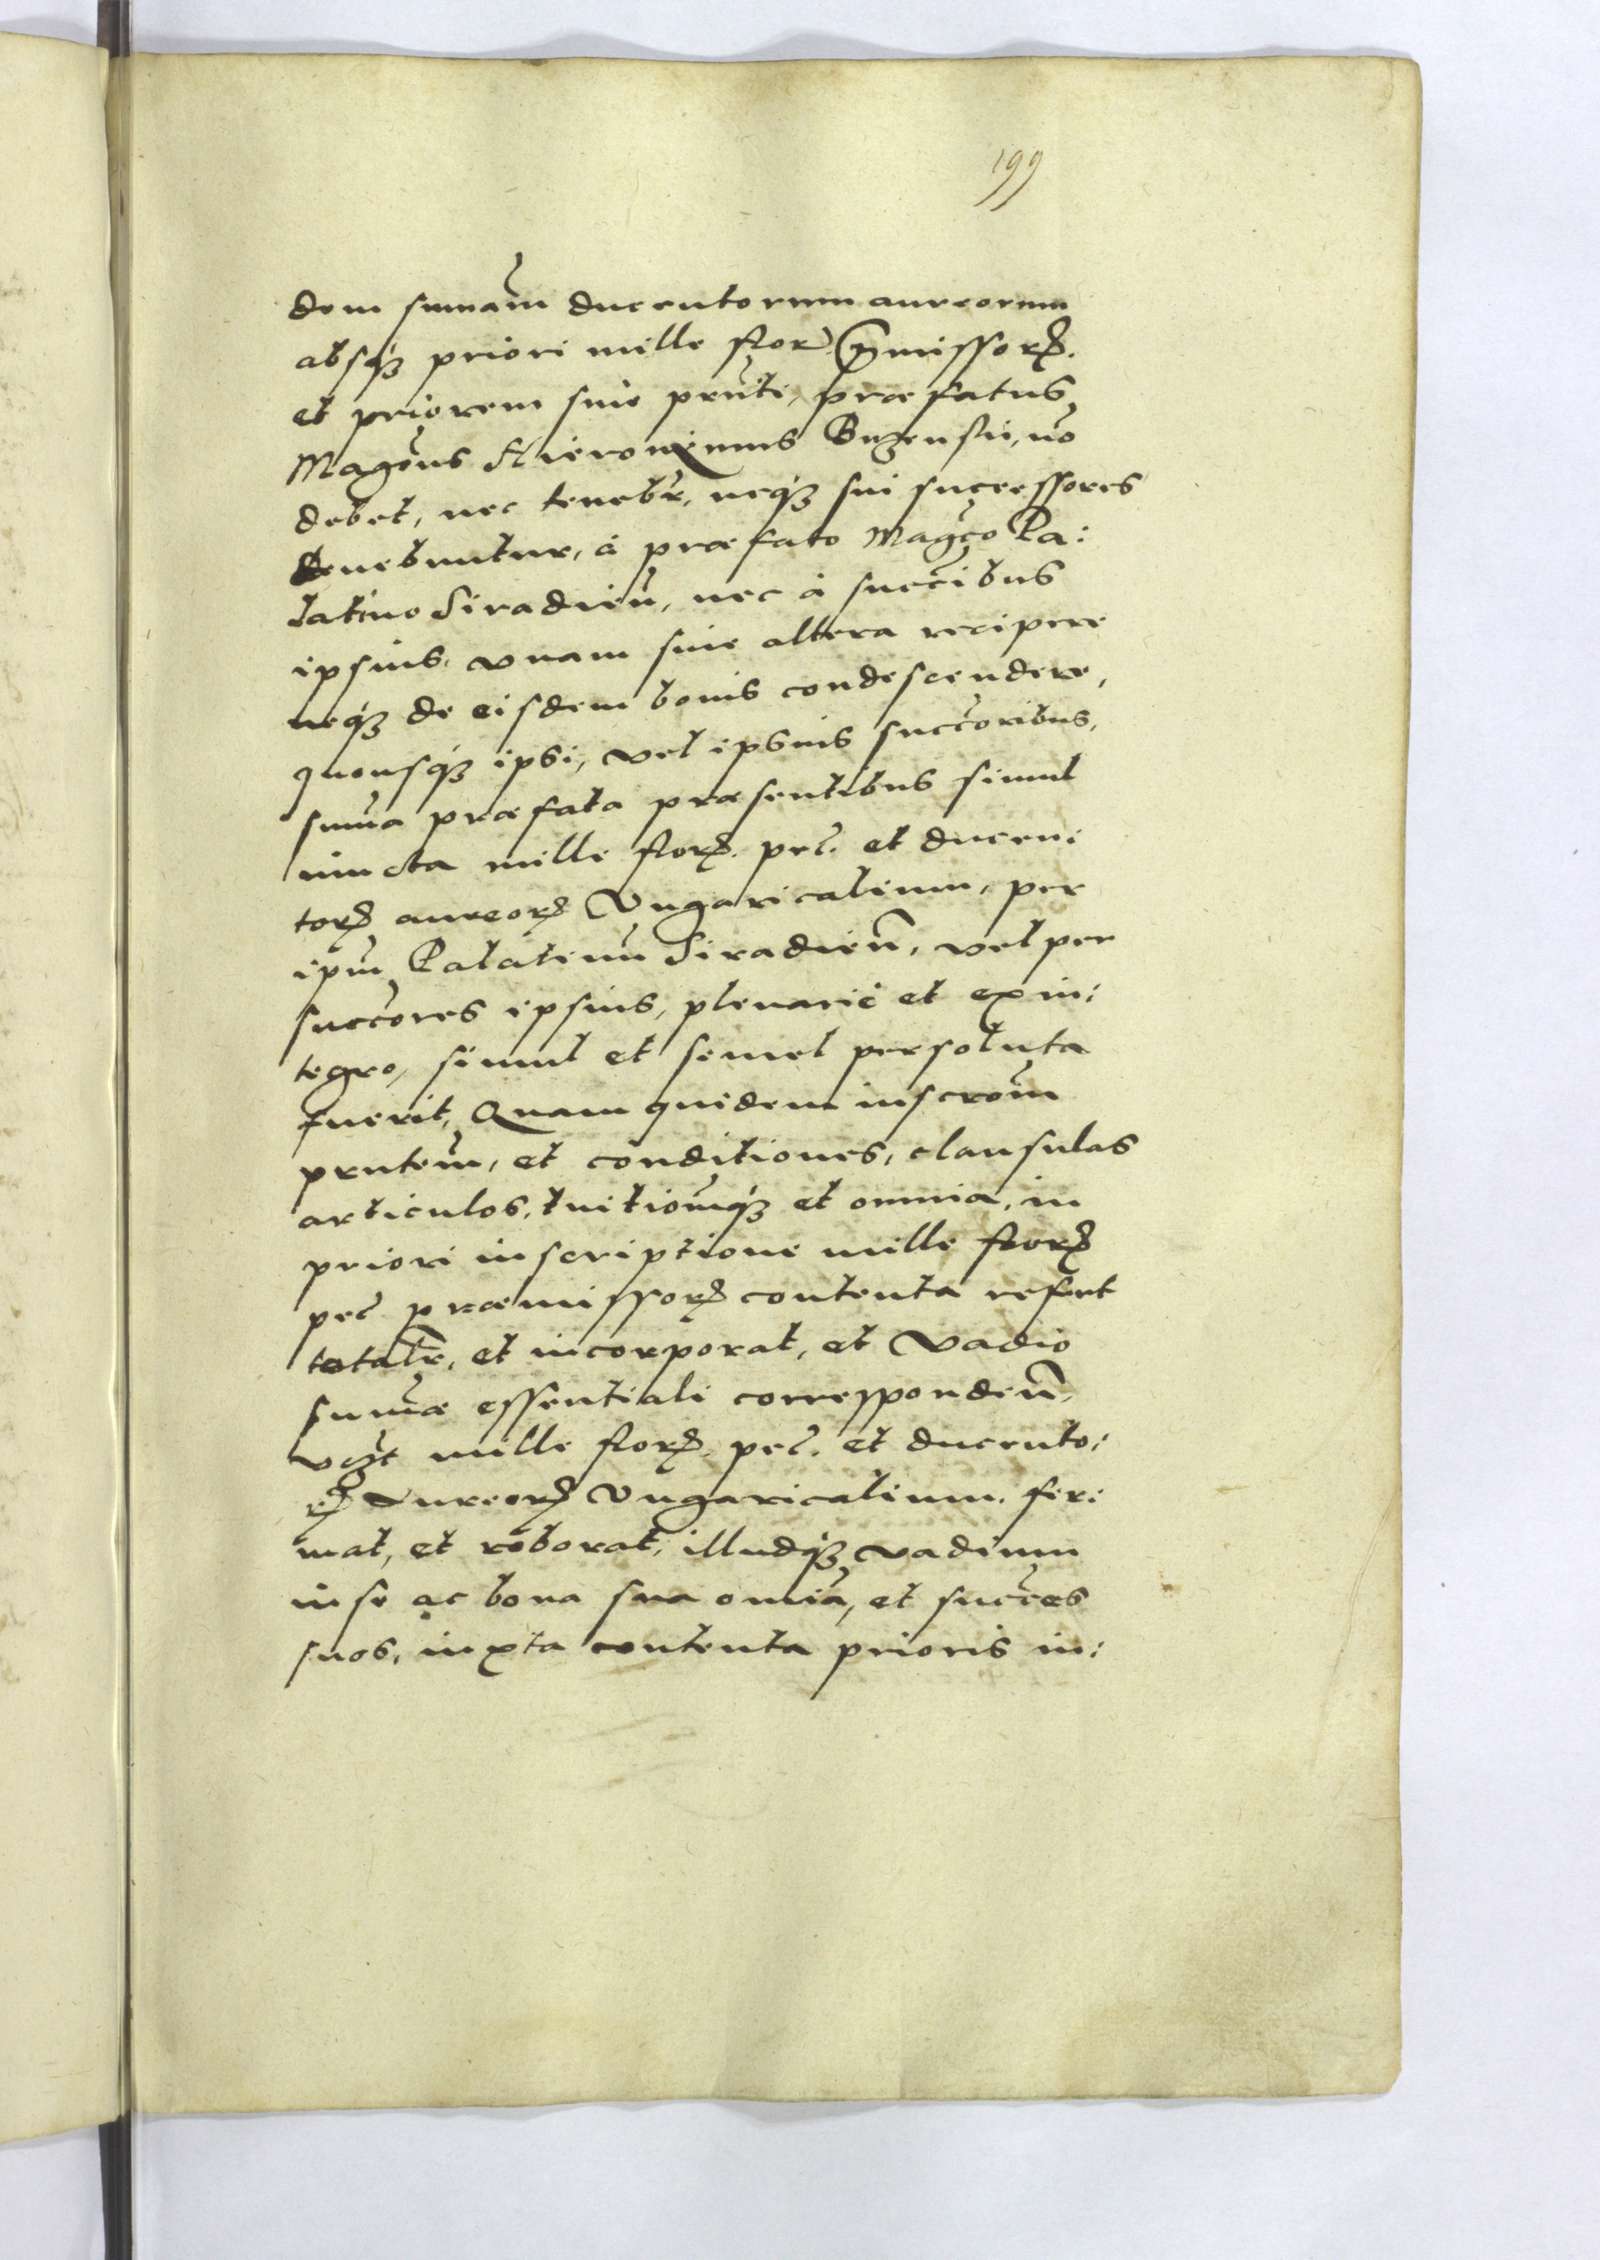 199
dem sum̃am ducentorum aureorum
absq́ꝫ priori mille flor p̱missorꝝ.
et priorem sine pñti, præfatus
Magc̃us Hieronymus Buzenski, nõ
debet, nec tenebr̃, neq́ꝫ sui successores
tenebuntur, à præfato Magc̃o Pa:
latino Siradieñ, nec à succr̃ibus
ipsius, vnam sine altera recipere
neq́ꝫ de eisdem bonis condescendere,
quousq́ꝫ ipsi, vel ipsius succc̃oribus,
sum̃a præfata præsentibus simul
iuncta mille florꝝ. pec̃. et ducen:
torꝝ aureorꝝ Vngaricalium, per
ipm̃ Palatinũ Siradieñ, vel per
succc̃ores ipsius, plenariè et ex in:
tegro, simul et semel persoluta
fuerit, Quam quidem inscrõm
pñtem, et conditiones, clausulas
articulos, tuitiom̃q́ꝫ et omnia, in
priori inscriptione mille florꝝ
pec̃ præmissorꝝ contenta refert
totalr̃, et incorporat, et Vadio
sum̃æ essentiali correspondeñ,
vꝫt mille florꝝ. pec̃. et ducento:
rꝝ Aureorꝝ Vngaricalium. fir:
mat, et roborat, illudq́ꝫ vadium
in se ac bona sua om̃ia, et succc̃es
suos, iuxta contenta prioris in: